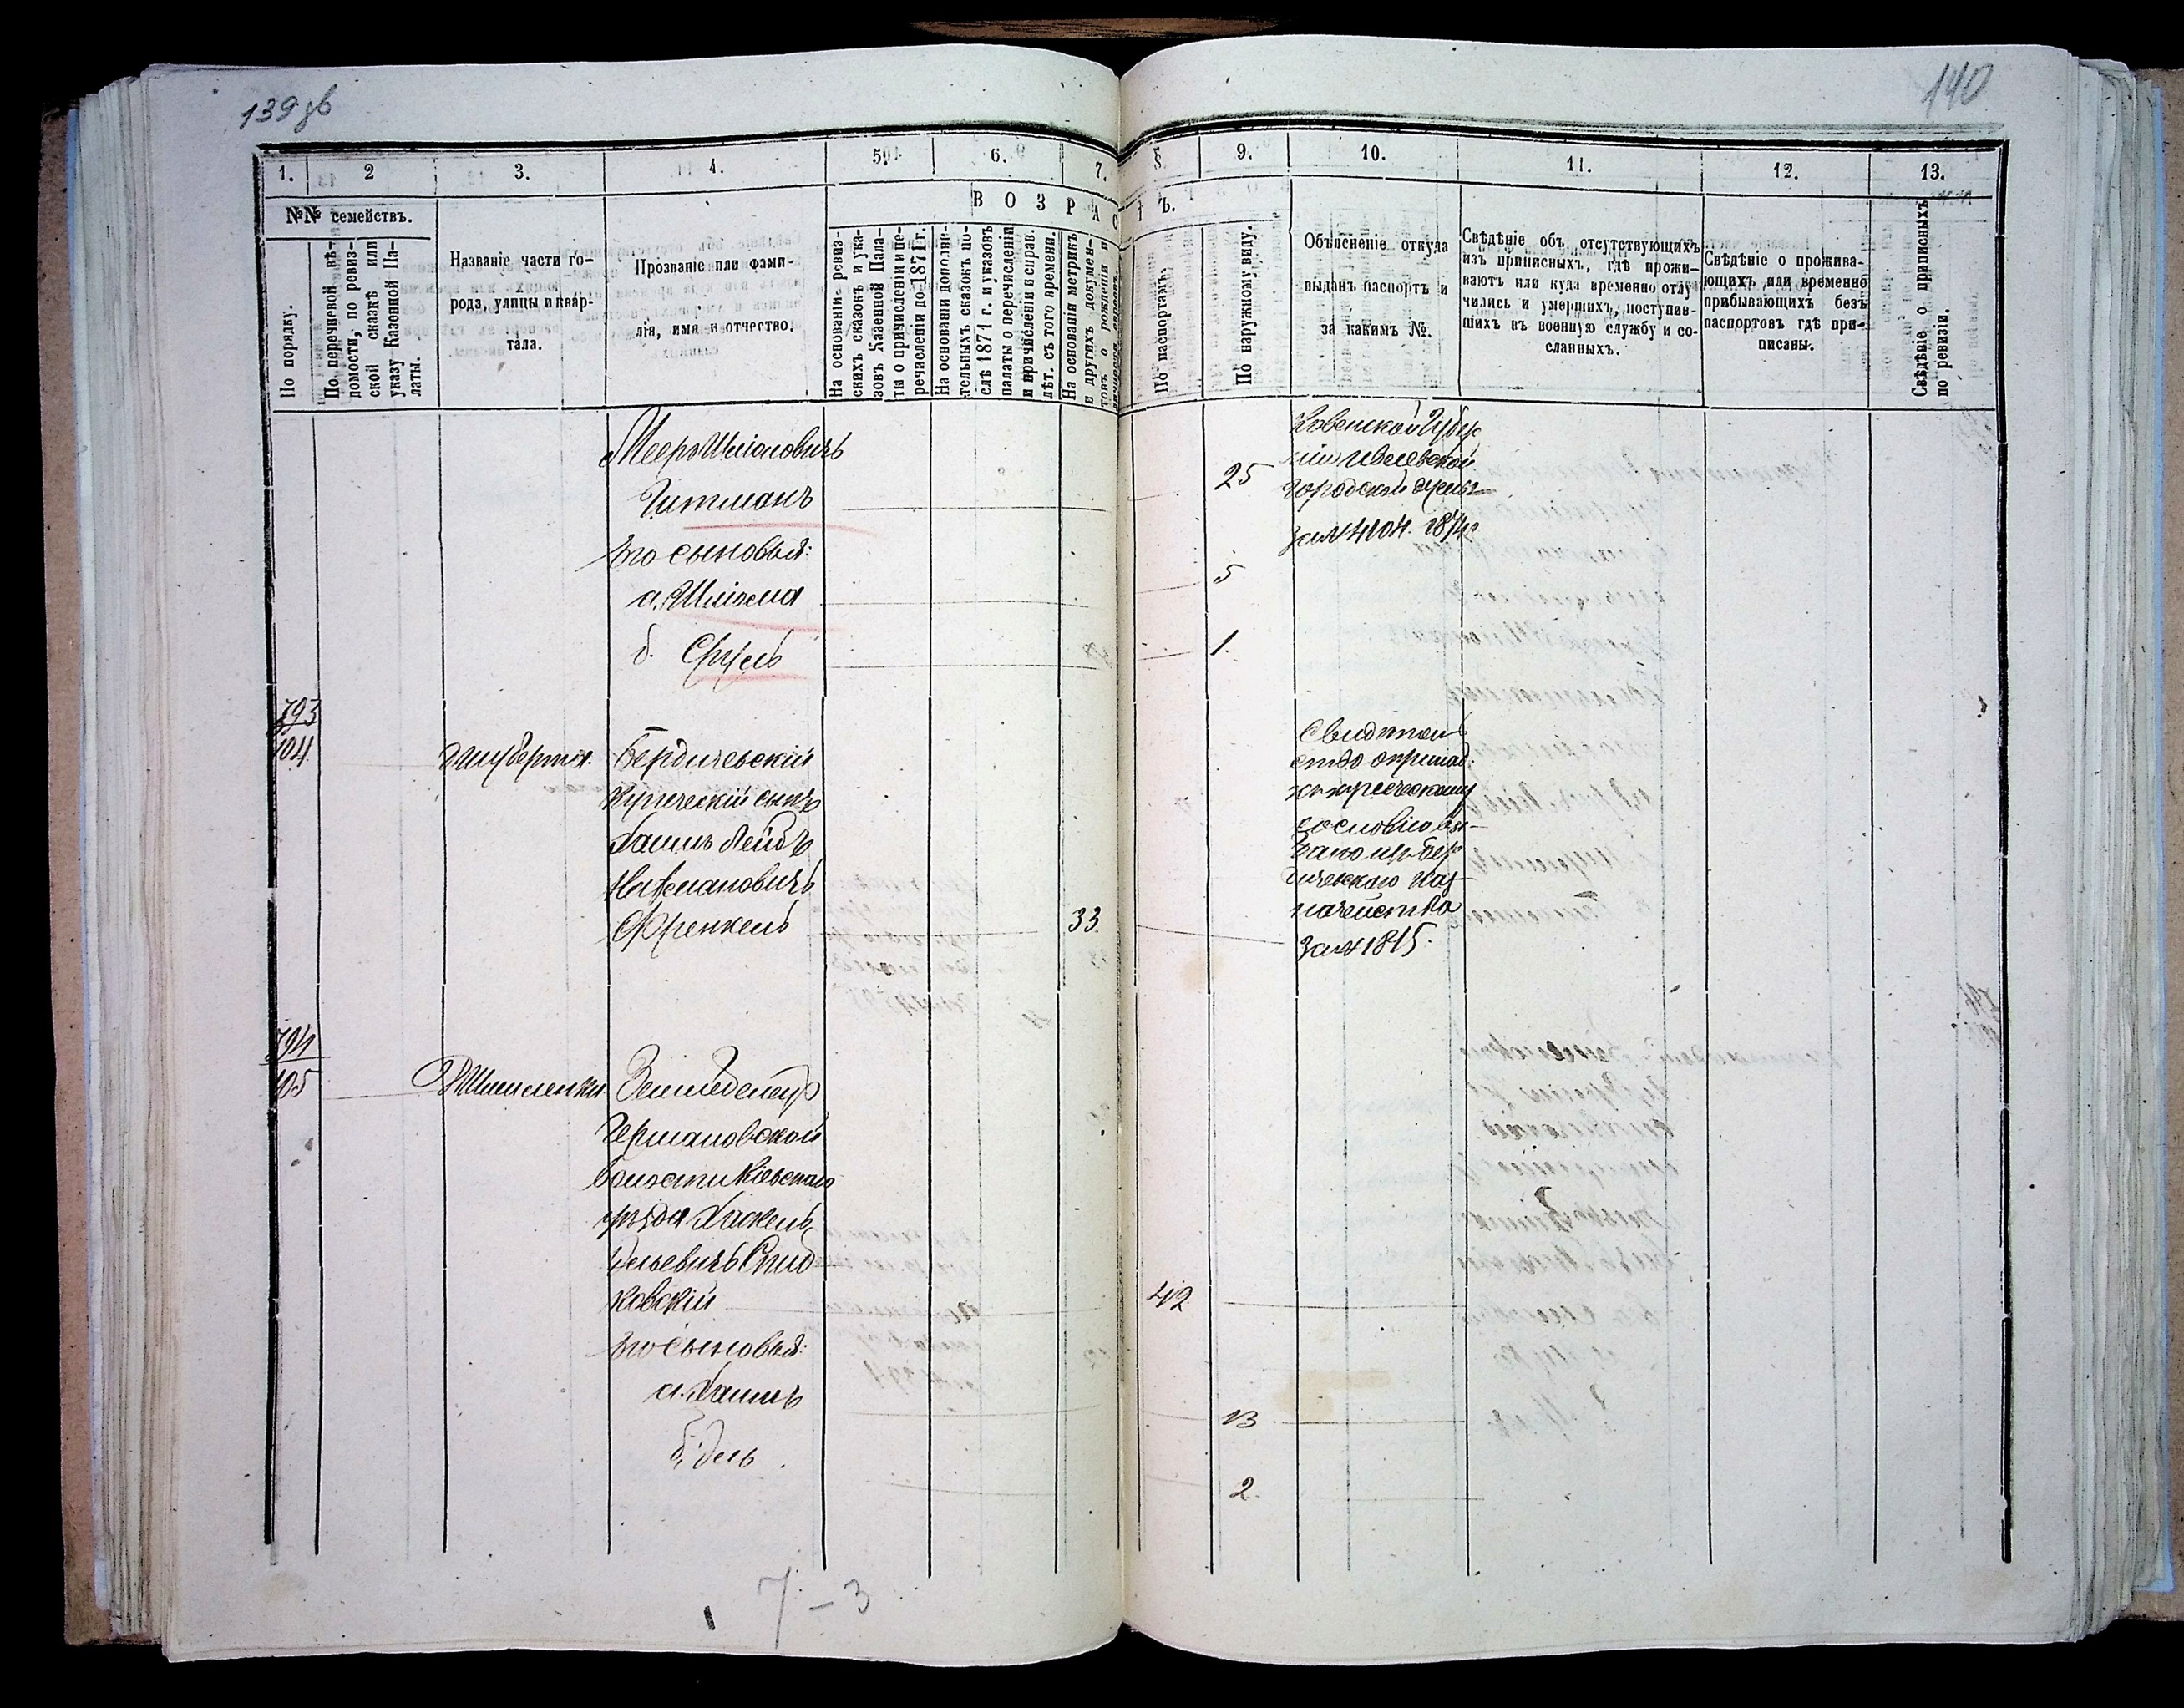 139 об
140
1.
2
3.
4.
5.
6.
7.
8.
9.
10.
11.
12.
13.
№№ семействъ.
По порядку.
По перечневой вѣ-
домости, по ревиз-
ской сказкѣ или
указу Казенной Па-
латы.
Названіе части го-
рода, улицы и квар-
тала.
Прозваніе или фами-
лія, имя и отчество.
ВОЗРАСТЪ.
На основаніи ревиз-
скихъ сказокъ и ука-
зовъ Казенной Пала-
ты о причисленіи и пе-
речисленіи до 1871 г.
На основаніи дополни-
тельныхъ сказокъ по-
слѣ 1871 г. и указовъ
палаты о перечисленіи
и причисленіи и справ.
лѣт. съ того времени.
На основаніи метрикъ
и другихъ докумен-
товъ о рожденіи и
По паспортамъ.
По наружному виду.
Объясненіе откуда
выданъ паспортъ и
за какимъ №.
Свѣдѣніе объ отсутствующихъ
изъ приписныхъ, гдѣ прожи-
ваютъ или куда временно отлу-
чились и умершихъ, поступив-
шихъ въ военную службу и со-
сланныхъ.
Свѣдѣніе о прожива-
ющихъ или временно
прибывающихъ безъ
паспортовъ гдѣ при-
писаны.
Свѣдѣніе о приписныхъ
по ревизіи.
Мееръ Шліомовичъ
Гитманъ
25
Ковенской Губер
ніи
городской
за № 1404. 1874 г
Его сыновья:
а. Шліома
5
б. Сруль
1.
793
104
Бердичевскій
купеческій сынъ
Хаимъ Лейбъ
Нахмановичъ
Френкель
33.
Свидѣтель
ство о принад:
къ купеческому
сословію вы-
дано изъ Бер
дичевскаго Каз-
начейства
за № 1815.
794
105
Земледелец
Германовской
волости Кіевскаго
уѣзда Хаскель
ковскій
42
Его сыновья:
а. Хаимъ
13
б.
2.
7-3